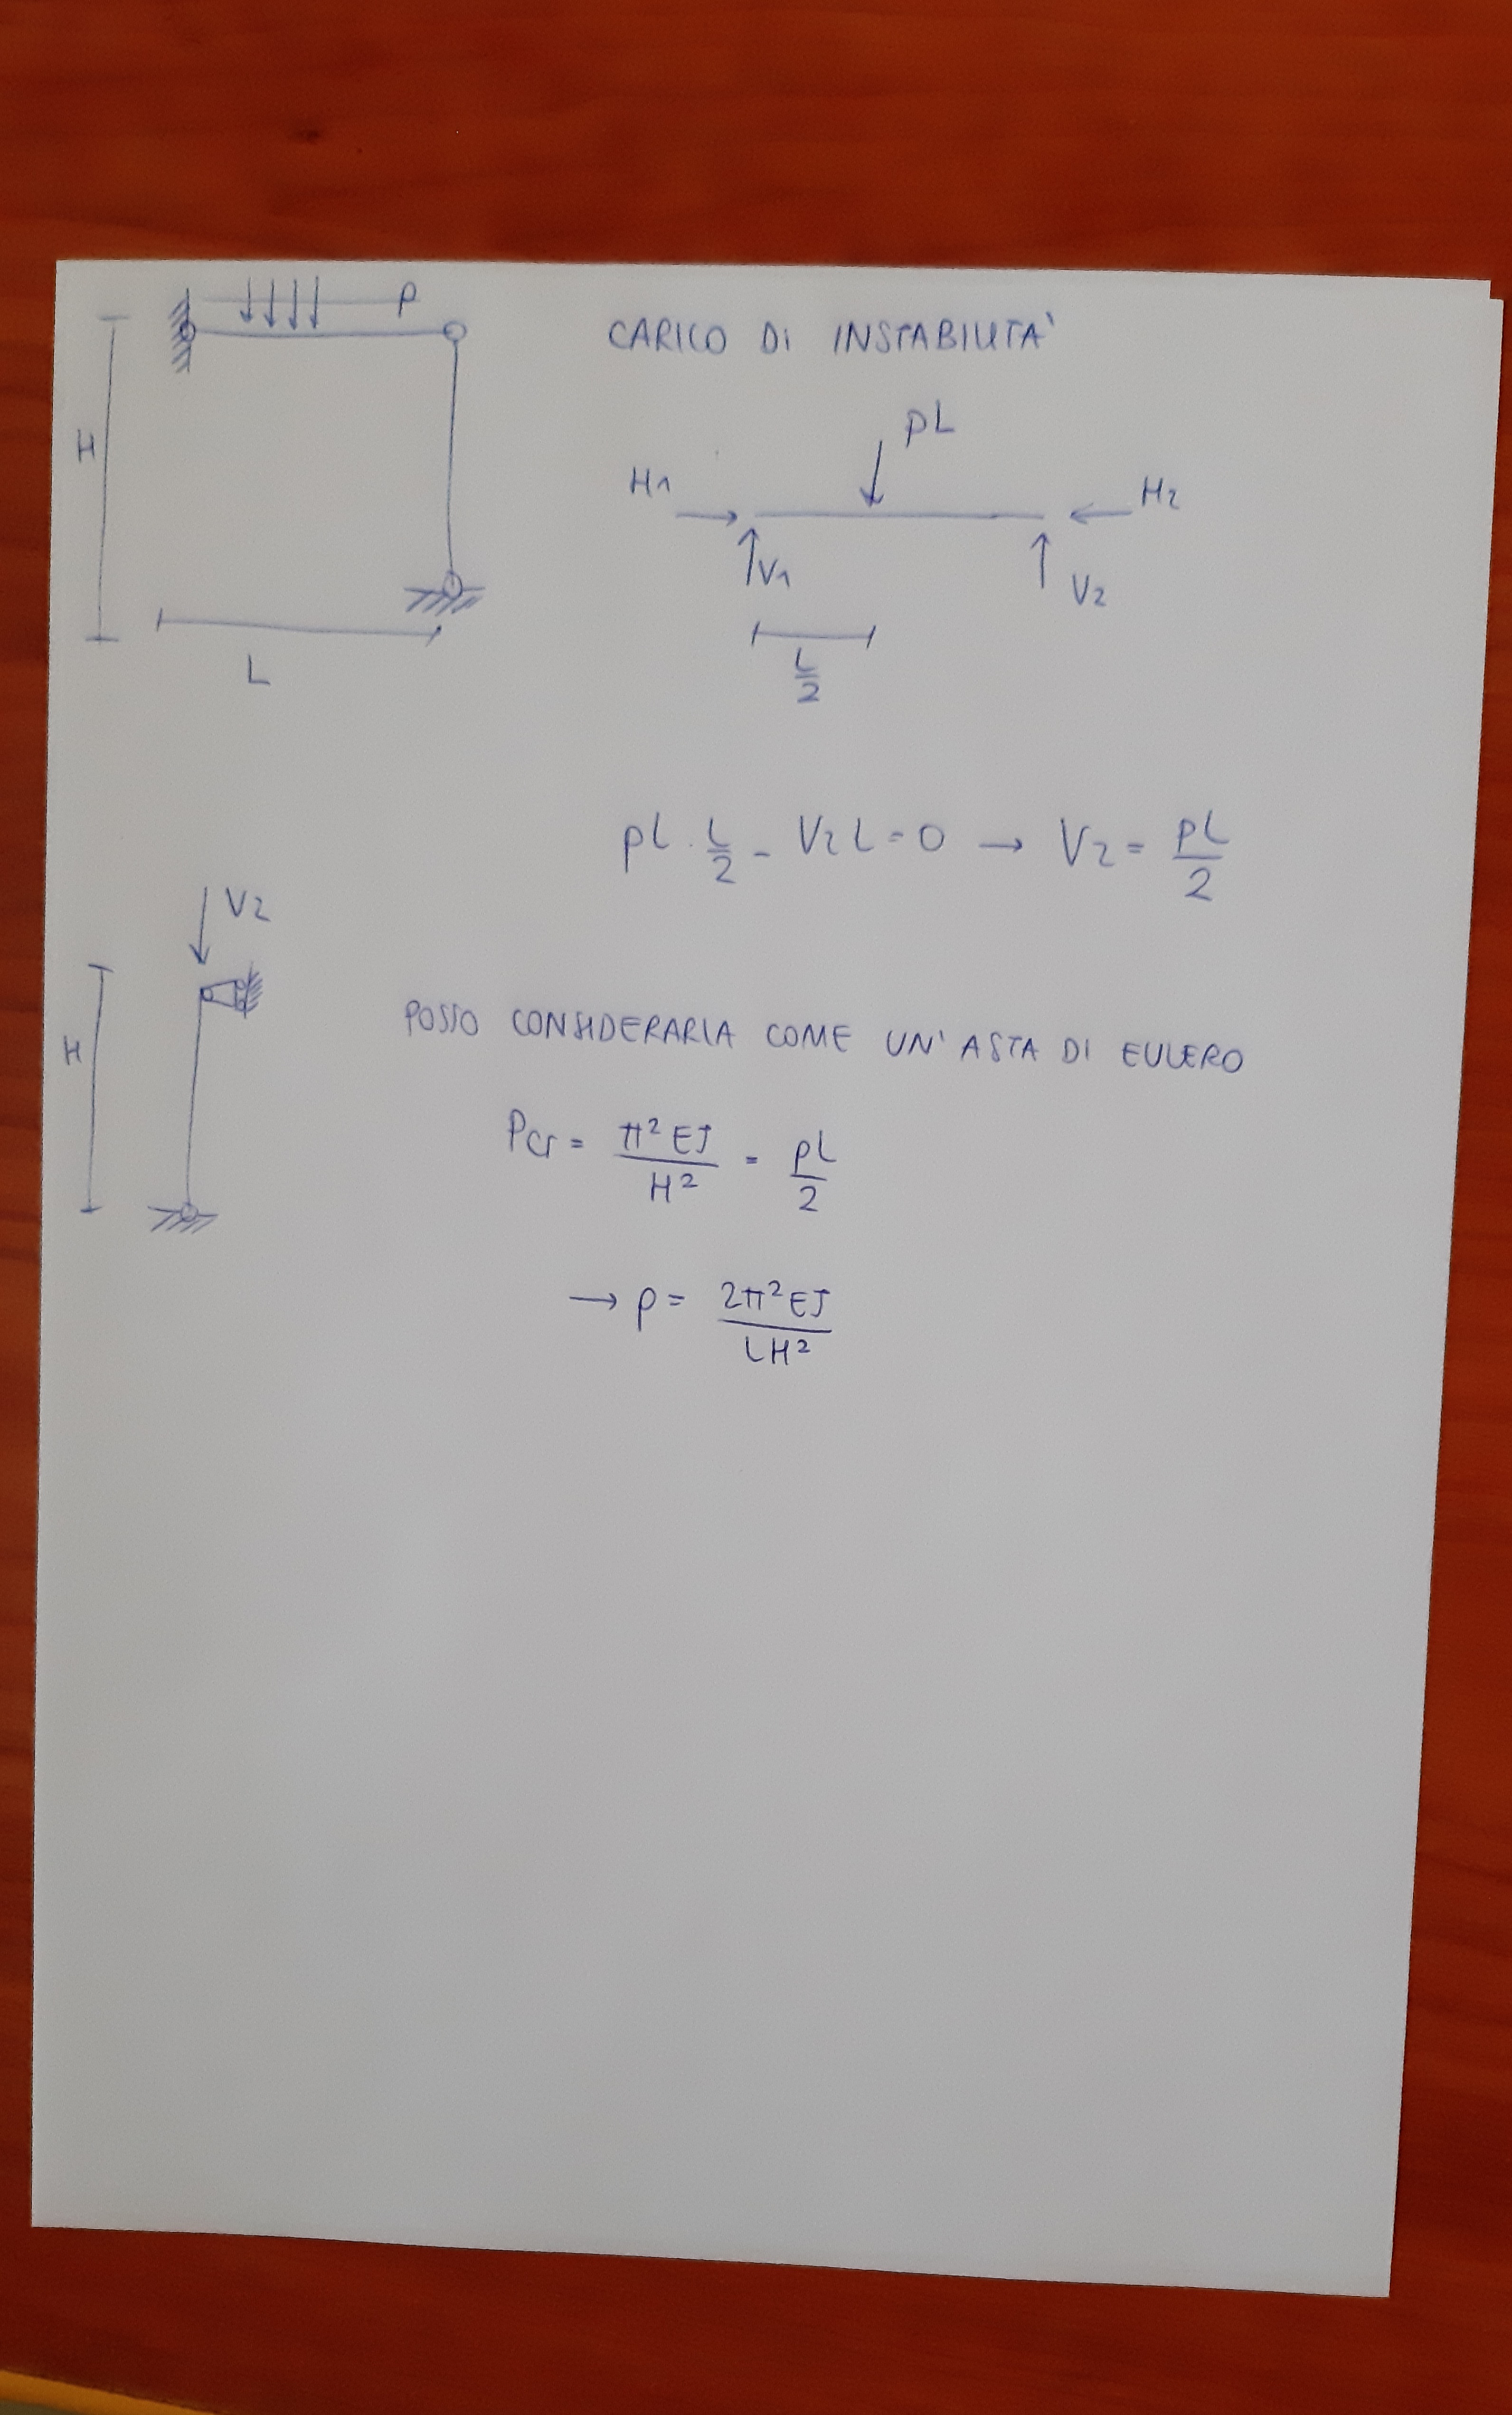 p
CARICO DI INSTABILITA'
H
L
pL
H1
H2
V1
V2
L/2
pL · L/2 - V2 L = 0 → V2 = pL/2
V2
H
POSSO CONSIDERARLA COME UN'ASTA DI EULERO
Pcr = π² EJ / H² = pL/2
→ p = 2π² EJ / LH²